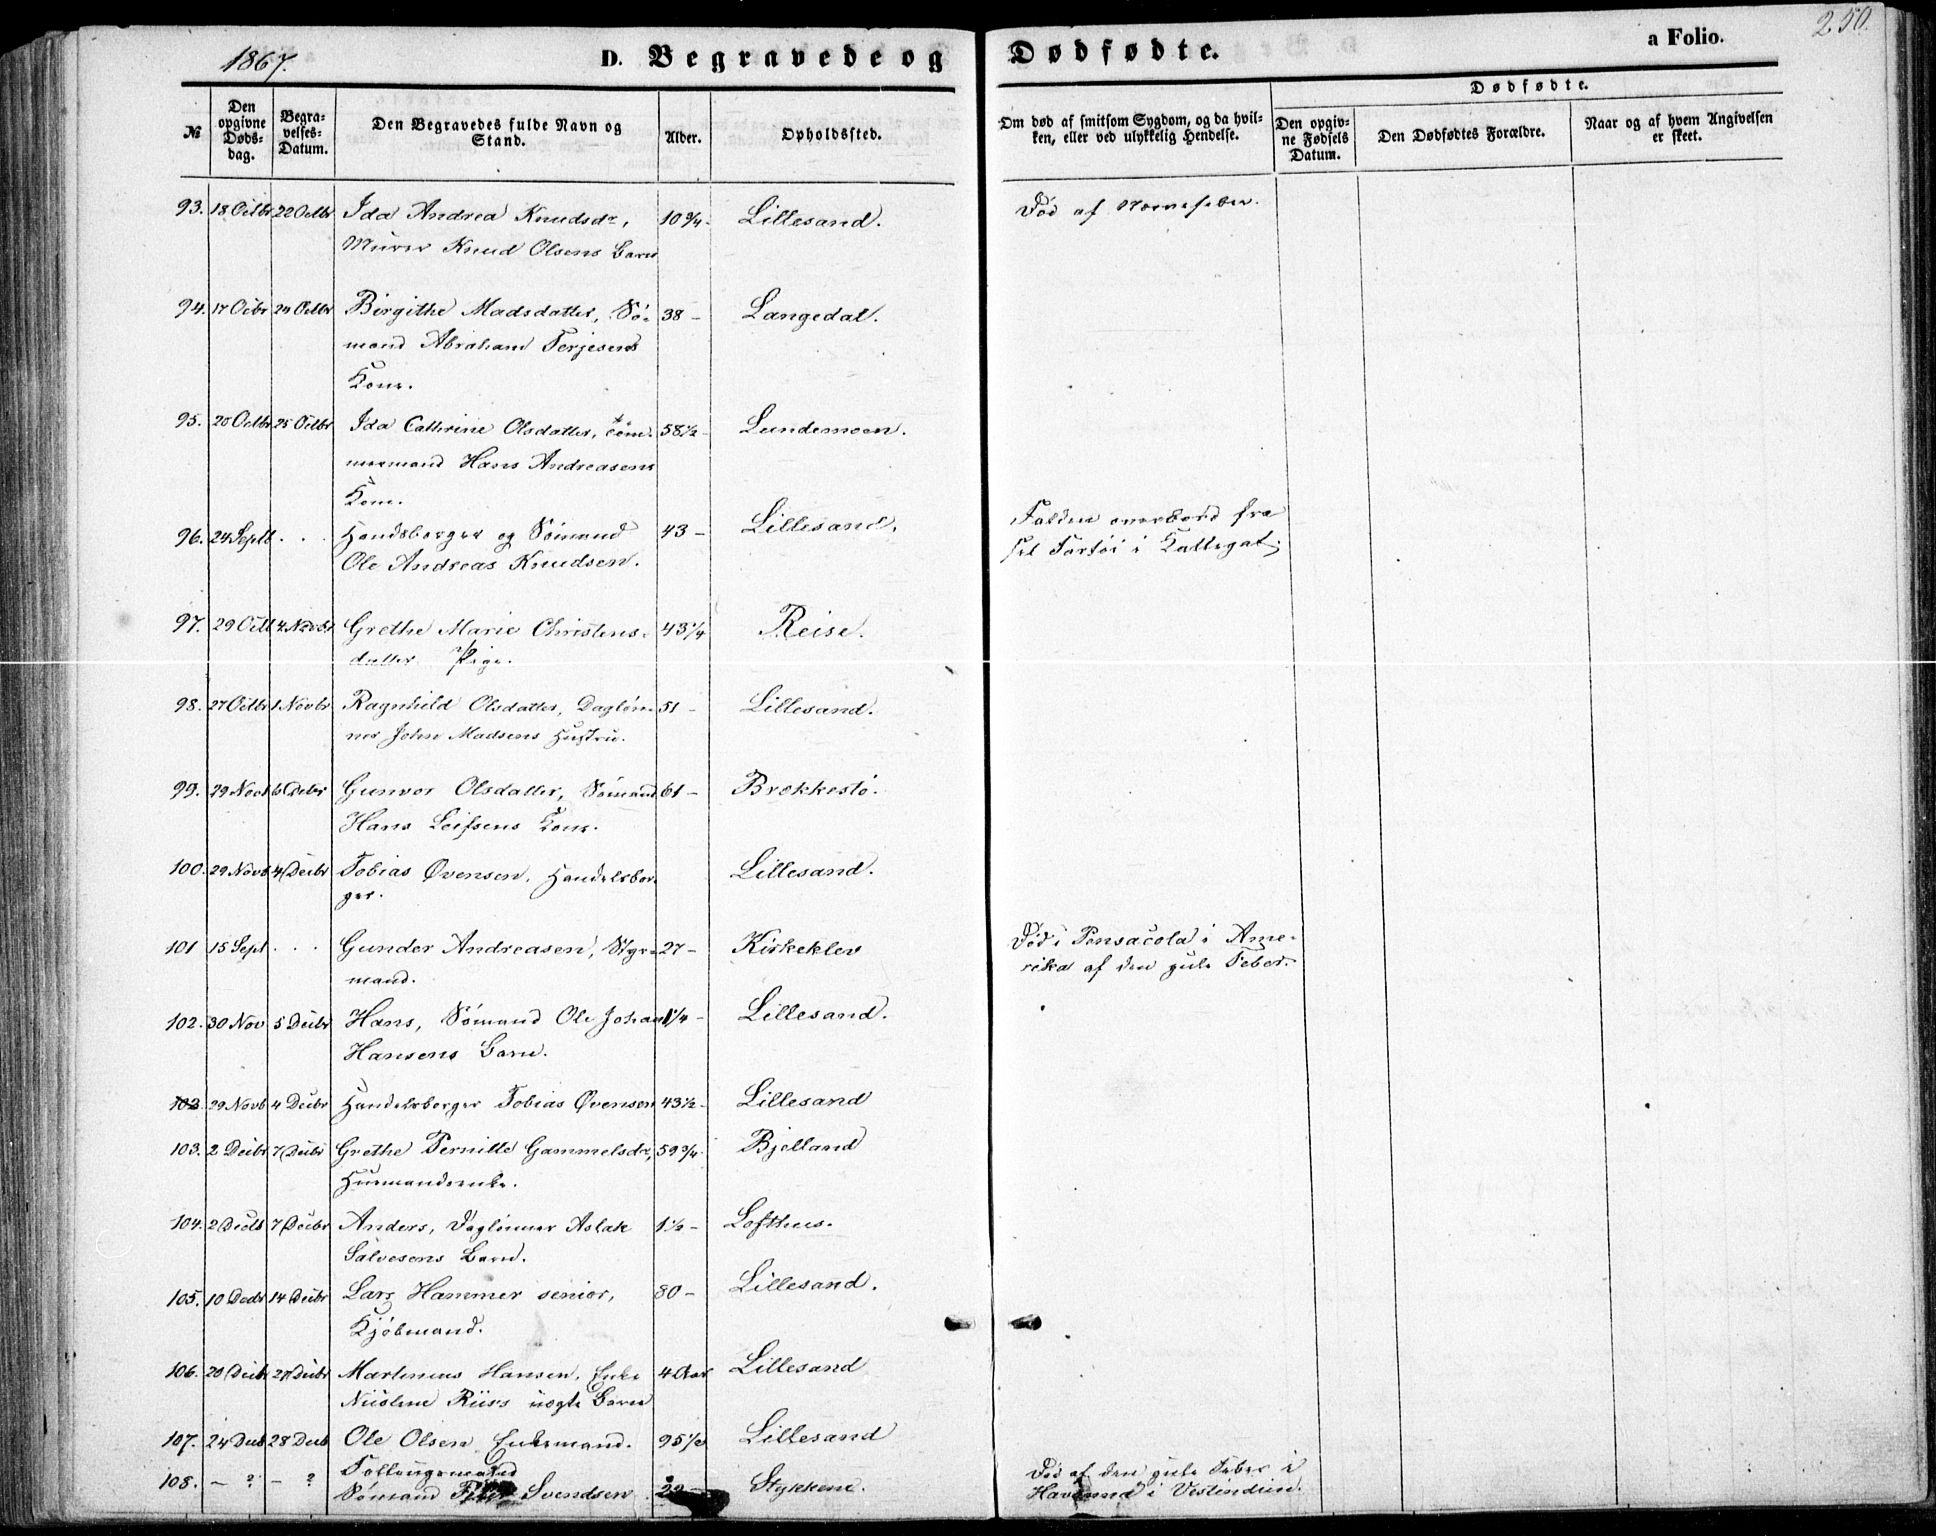 1867.
D. Begravede og Dødfødte.
a Folio.
250.
Dødfødte.
№
Den opgivne Døds-dag.
Begra-velses-Datum.
Den Begravedes fulde Navn og Stand.
Alder.
Opholdssted.
Om død af smitsom Sygdom, og da hvil-ken, eller ved ulykkelig Hendelse.
Den opgiv-ne Fødsels Datum.
Den Dødfødtes Forældre.
Naar og af hvem Angivelsen er skeet.
93. 18 Octbr 22 Octbr Ida Andrea Knudsdr, 10 3/4 - Lillesand. Død af Nervefeber.
Murer Knud Olsens Barn
94. 17 Octbr 24 Octbr Birgithe Madsdatter, Sø- 38 - Langedal.
mand Abraham Terjesens
Kone.
95. 20 Octbr 25 Octbr Ida Cathrine Olsdatter, Tøm- 58 1/2 - Lundemoen.
mermand Hans Andreasens
Kone.
96. 24 Septb . . . Handsborger og Sømand 43 - Lillesand. Falden overbord fra
Ole Andreas Knudsen. sit Fartøi i Kattegat.
97. 29 Octb 4 Novbr Grethe Marie Christens- 43 1/4 Reise.
datter Pige.
98. 27 Octbr 1 Novbr Ragnhild Olsdatter, Dagløn- 51 - Lillesand.
ner John Madsens Hustru.
99. 29 Novb 6 Decbr Gunvor Olsdatter, Sømand 61 - Brækkestø.
Hans Leifsens Kone.
100. 29 Novb 4 Decbr Tobias Øvensen, Handelsbor- Lillesand.
ger.
101 15 Sept . . . Gunder Andreasen, Styr- 27 - Kirkeklev Død i Pensacola i Ame-
mand. rika af den gule Feber.
102. 30 Nov 5 Decbr Hans, Sømand Ole Johan 1/4 - Lillesand.
Hansens Barn.
103 29 Novb 4 Decbr Handelsborger Tobias Øvensen 43 1/2 - Lillesand
103. 2 Decbr 7 Decbr Grethe Pernille Gammelsdr, 59 3/4 Bjelland
Husmandsenke.
104. 2 Decb 7 Decbr Anders, Daglønner Aslak 1 1/2 - Lofthus.
Salvesens Barn.
105. 10 Decbr 14 Decbr Lars Hammer senior, 80 - Lillesand.
Kjøbmand.
106. 20 Decbr 27 Decbr Martinius Hansen, Enke 4 Aar Lillesand
Riis's uægte Barn
107. 24 Decb 28 Decb Ole Olsen Enkemand. 95 1/2 Lillesand
108. - ? - ? Død af den gule Feber i
Sømand Svendsen Stykkene. Havanna i Vestindien.